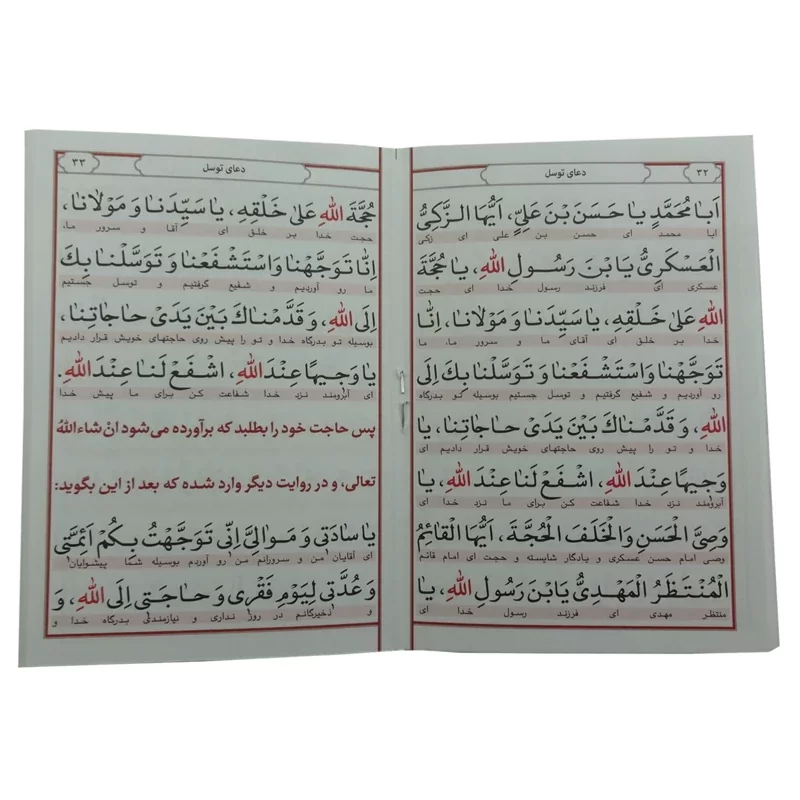 ۳۲
دعای توسل
اَبا مُحَمَّدٍ یا حَسَنَ بْنَ عَلِیٍّ، اَیُّهَا الزَّکِیُّ
ابا محمد ای حسن بن علی ای زکی
الْعَسْکَرِیُّ یَا بْنَ رَسُولِ اللهِ، یا حُجَّةَ
عسکری ای فرزند رسول خدا ای حجت
اللهِ عَلیٰ خَلْقِهِ، یا سَیِّدَنا وَ مَوْلانا، اِنّا
خدا بر خلق ای آقای ما و سرور ما، ما
تَوَجَّهْنا وَاسْتَشْفَعْنا وَ تَوَسَّلْنا بِكَ اِلَی
رو آوردیم و شفیع گرفتیم و توسل جستیم بوسیله تو بدرگاه
اللهِ، وَ قَدَّمْناكَ بَیْنَ یَدَیْ حاجاتِنا، یا
خدا و تو را پیش روی حاجتهای خویش قرار دادیم ای
وَجیهًا عِنْدَ اللهِ، اشْفَعْ لَنا عِنْدَ اللهِ، یا
آبرومند نزد خدا شفاعت کن برای ما نزد خدا ای
وَصِیَّ الْحَسَنِ وَالْخَلَفَ الْحُجَّةَ، اَیُّهَا الْقائِمُ
وصی امام حسن عسکری و یادگار شایسته و حجت ای امام قائم
الْمُنْتَظَرُ الْمَهْدِیُّ یَا بْنَ رَسُولِ اللهِ، یا
منتظر مهدی ای فرزند رسول خدا ای
۳۳
دعای توسل
حُجَّةَ اللهِ عَلیٰ خَلْقِهِ، یا سَیِّدَنا وَ مَوْلانا،
حجت خدا بر خلق ای آقا و سرور ما،
اِنّا تَوَجَّهْنا وَاسْتَشْفَعْنا وَ تَوَسَّلْنا بِكَ
ما رو آوردیم و شفیع گرفتیم و توسل جستیم
اِلَی اللهِ، وَ قَدَّمْناكَ بَیْنَ یَدَیْ حاجاتِنا،
بوسیله تو بدرگاه خدا و تو را پیش روی حاجتهای خویش قرار دادیم
یا وَجیهًا عِنْدَ اللهِ، اشْفَعْ لَنا عِنْدَ اللهِ.
ای آبرومند نزد خدا شفاعت کن برای ما پیش خدا
پس حاجت خود را بطلبد که برآورده می‌شود انْ شاءَ اللهُ
تعالی، و در روایت دیگر وارد شده که بعد از این بگوید:
یا سادَتی وَ مَوالِیَّ اِنّی تَوَجَّهْتُ بِکُمْ اَئِمَّتی
ای آقایان من و سرورانم من رو آوردم بوسیله شما پیشوایان
وَ عُدَّتی لِیَوْمِ فَقْری وَ حاجَتی اِلَی اللهِ، وَ
و ذخیرگانم در روز نداری و نیازمندگی بدرگاه خدا و